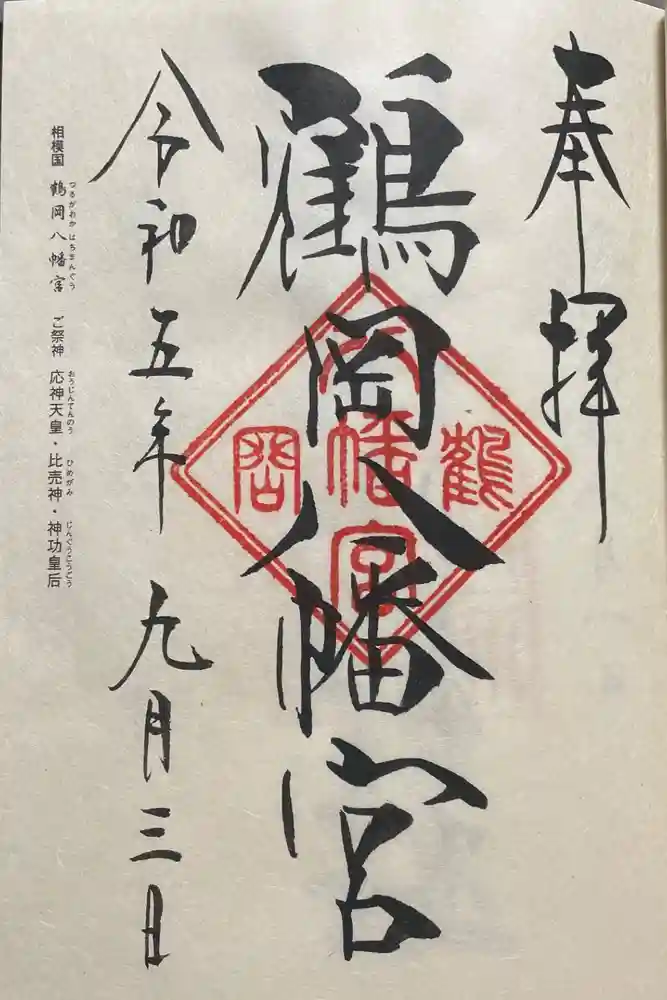 奉拝
鶴岡八幡宮
鶴岡八幡宮
令和五年 九月三日
相模国 鶴岡八幡宮 ご祭神 応神天皇・比売神・神功皇后
つるがおか はちまんぐう おうじんてんのう ひめがみ じんぐうこうごう